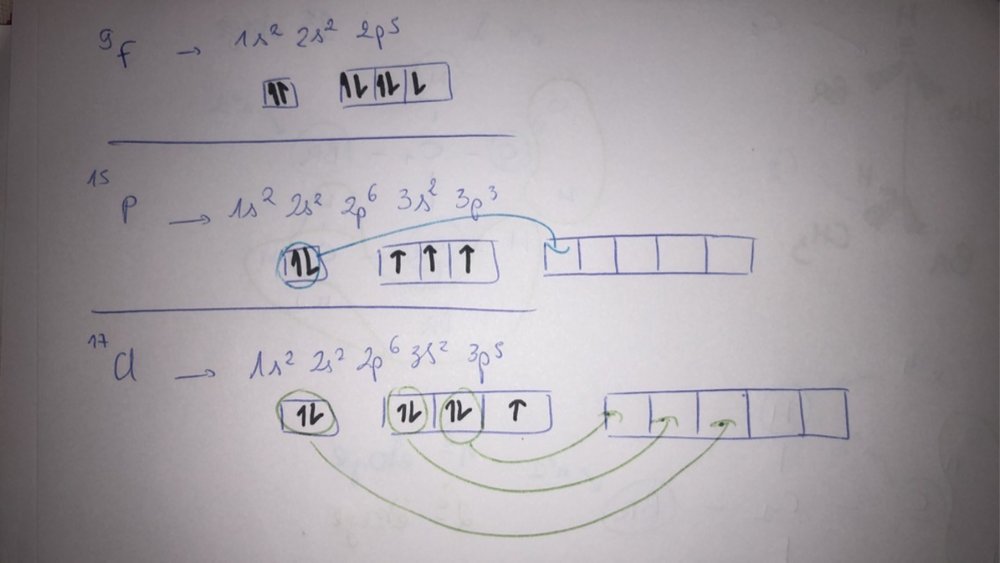 ⁹F → 1s² 2s² 2p⁵
↑↑ ↑⇂ ↑⇂ ⇂
¹⁵P → 1s² 2s² 2p⁶ 3s² 3p³
↑⇂ ↑ ↑ ↑
¹⁷Cl → 1s² 2s² 2p⁶ 3s² 3p⁵
↑⇂ ↑⇂ ↑⇂ ↑